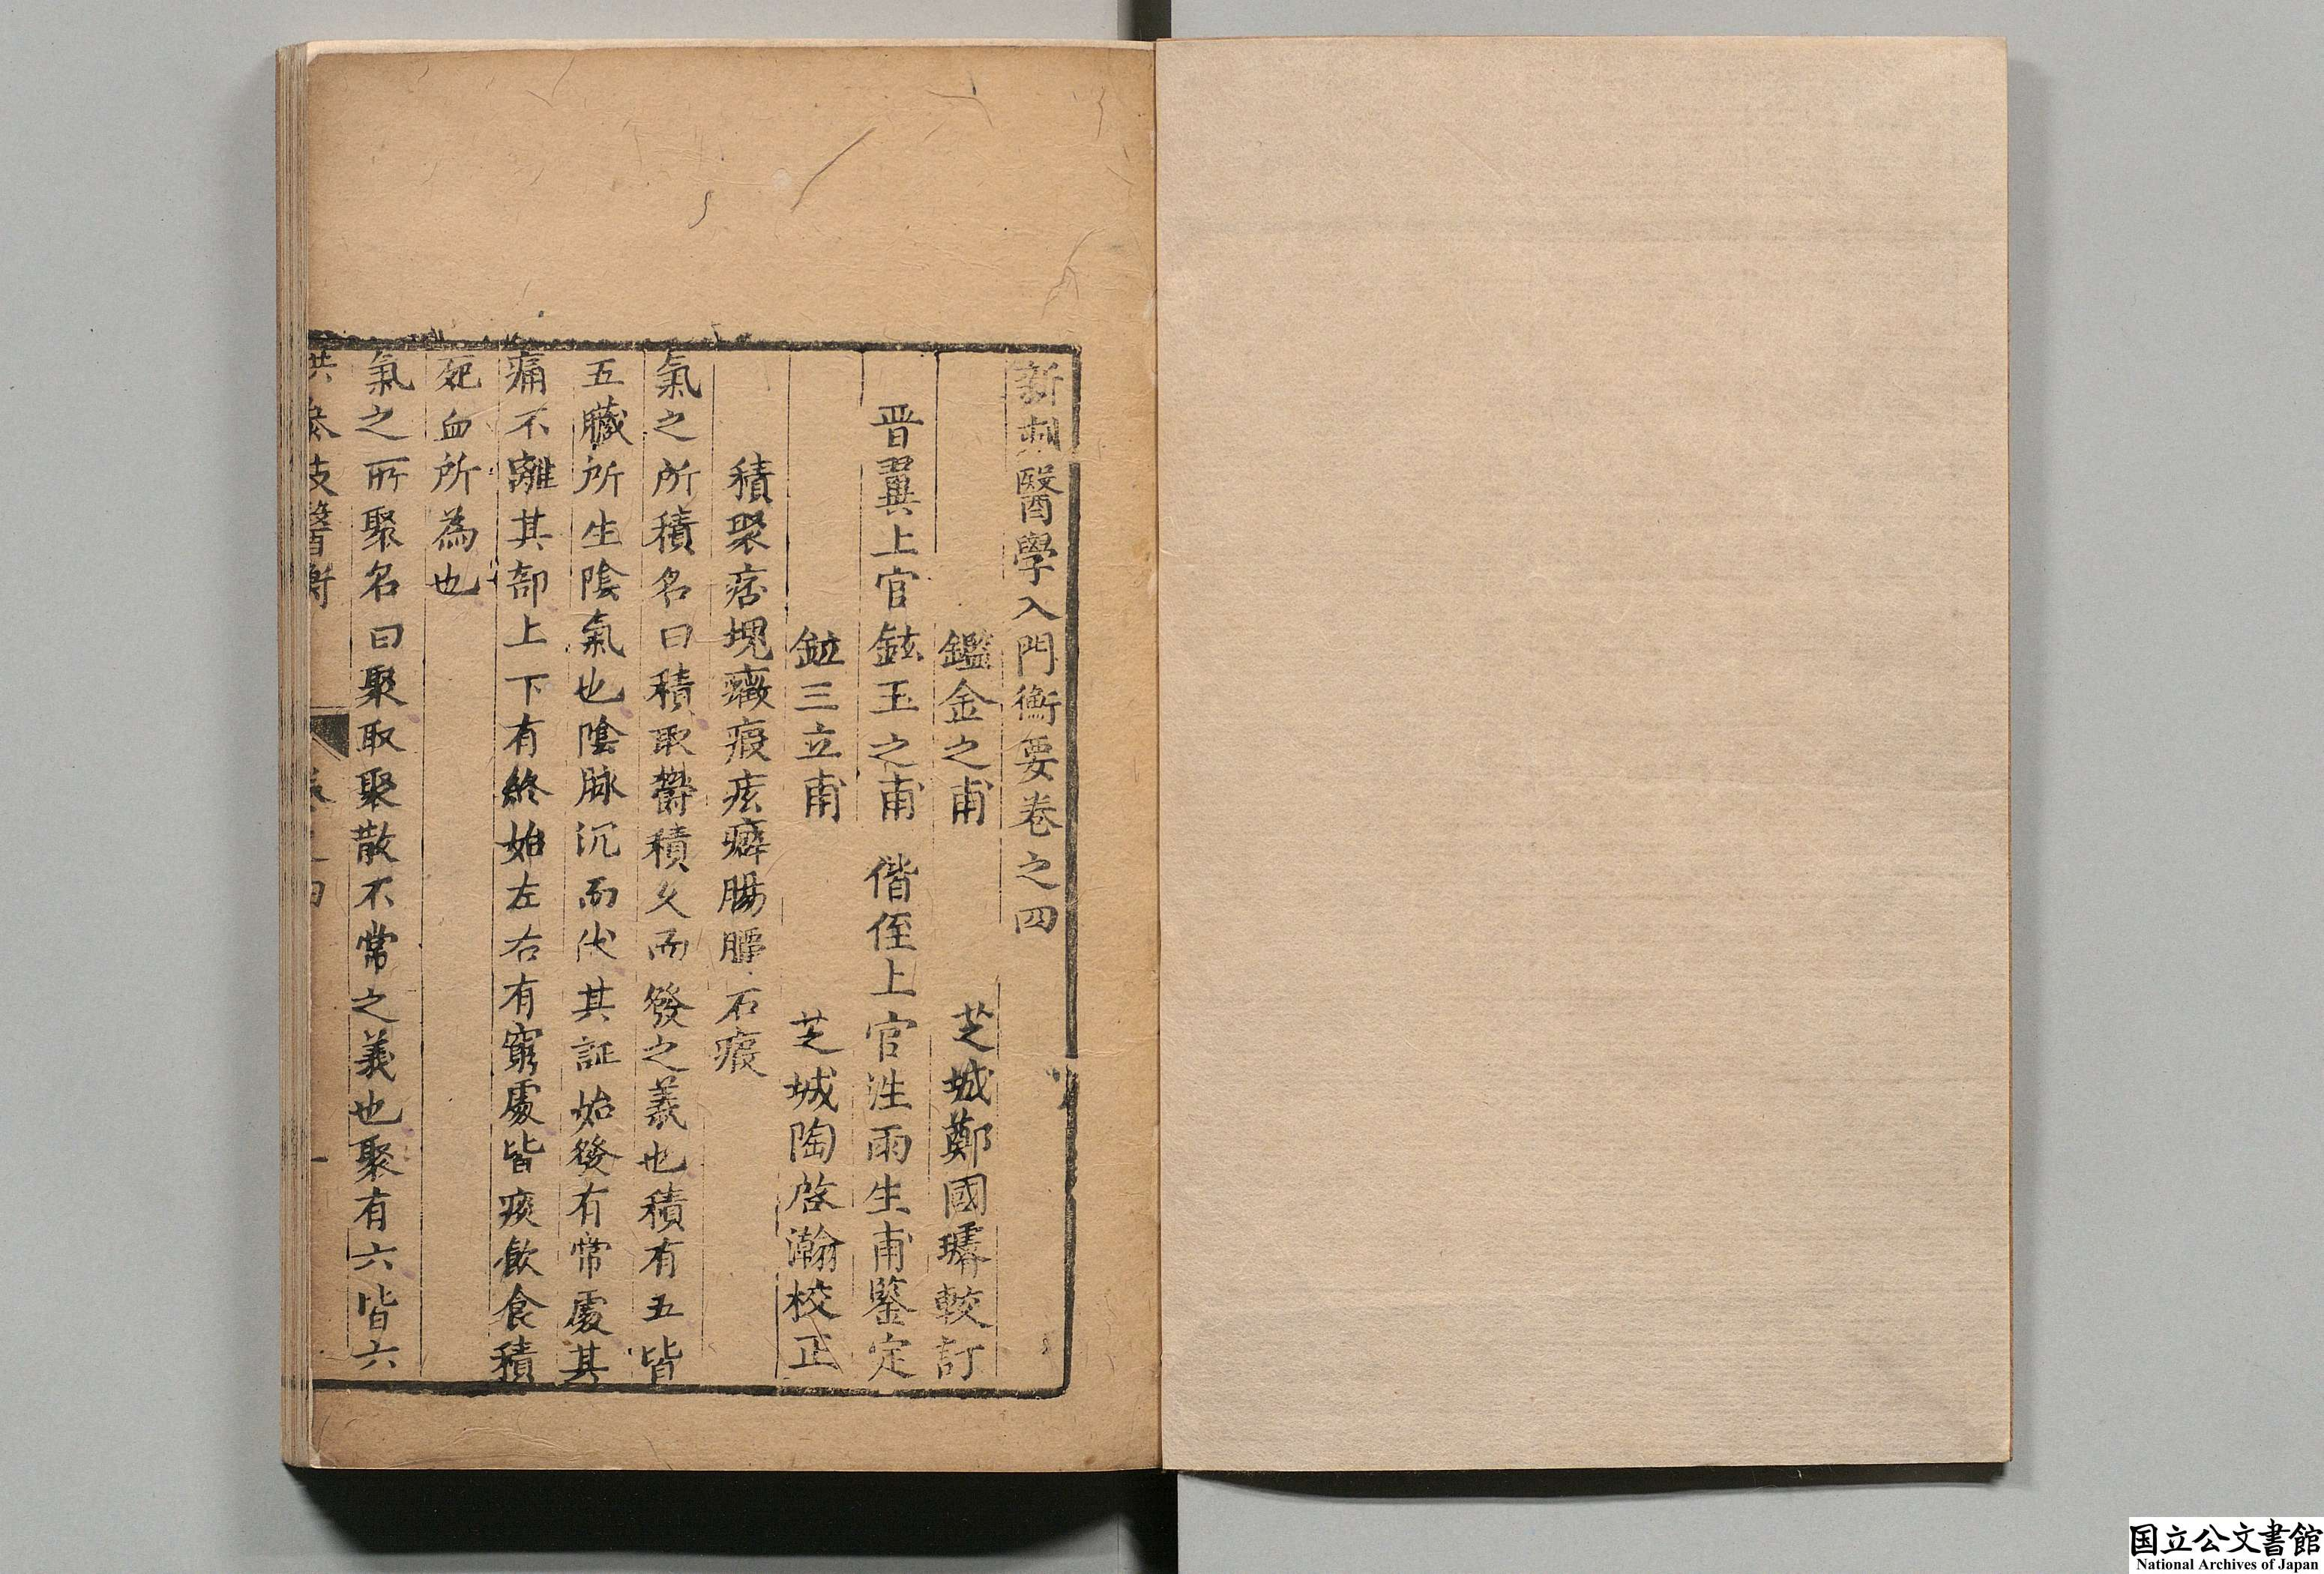 新刻醫學入門衡要卷之四
鑑金之甫 芝城鄭國璿較訂
晋翼上官鉉玉之甫 偕侄上官泩雨生甫鑒定
鉝三立甫 芝城陶啓瀚校正
積聚痞塊癥瘕痃癖腸覃石瘕
氣之所積名曰積積取欝積久而發之義也積有五皆
五臟所生陰氣也陰脉沉而伏其証始發有常處其
痛不離其部上下有終始左右有窮處皆痰飲食積
死血所為也
氣之所聚名曰聚取聚散不常之義也聚有六皆六
国立公文書館
National Archives of Japan